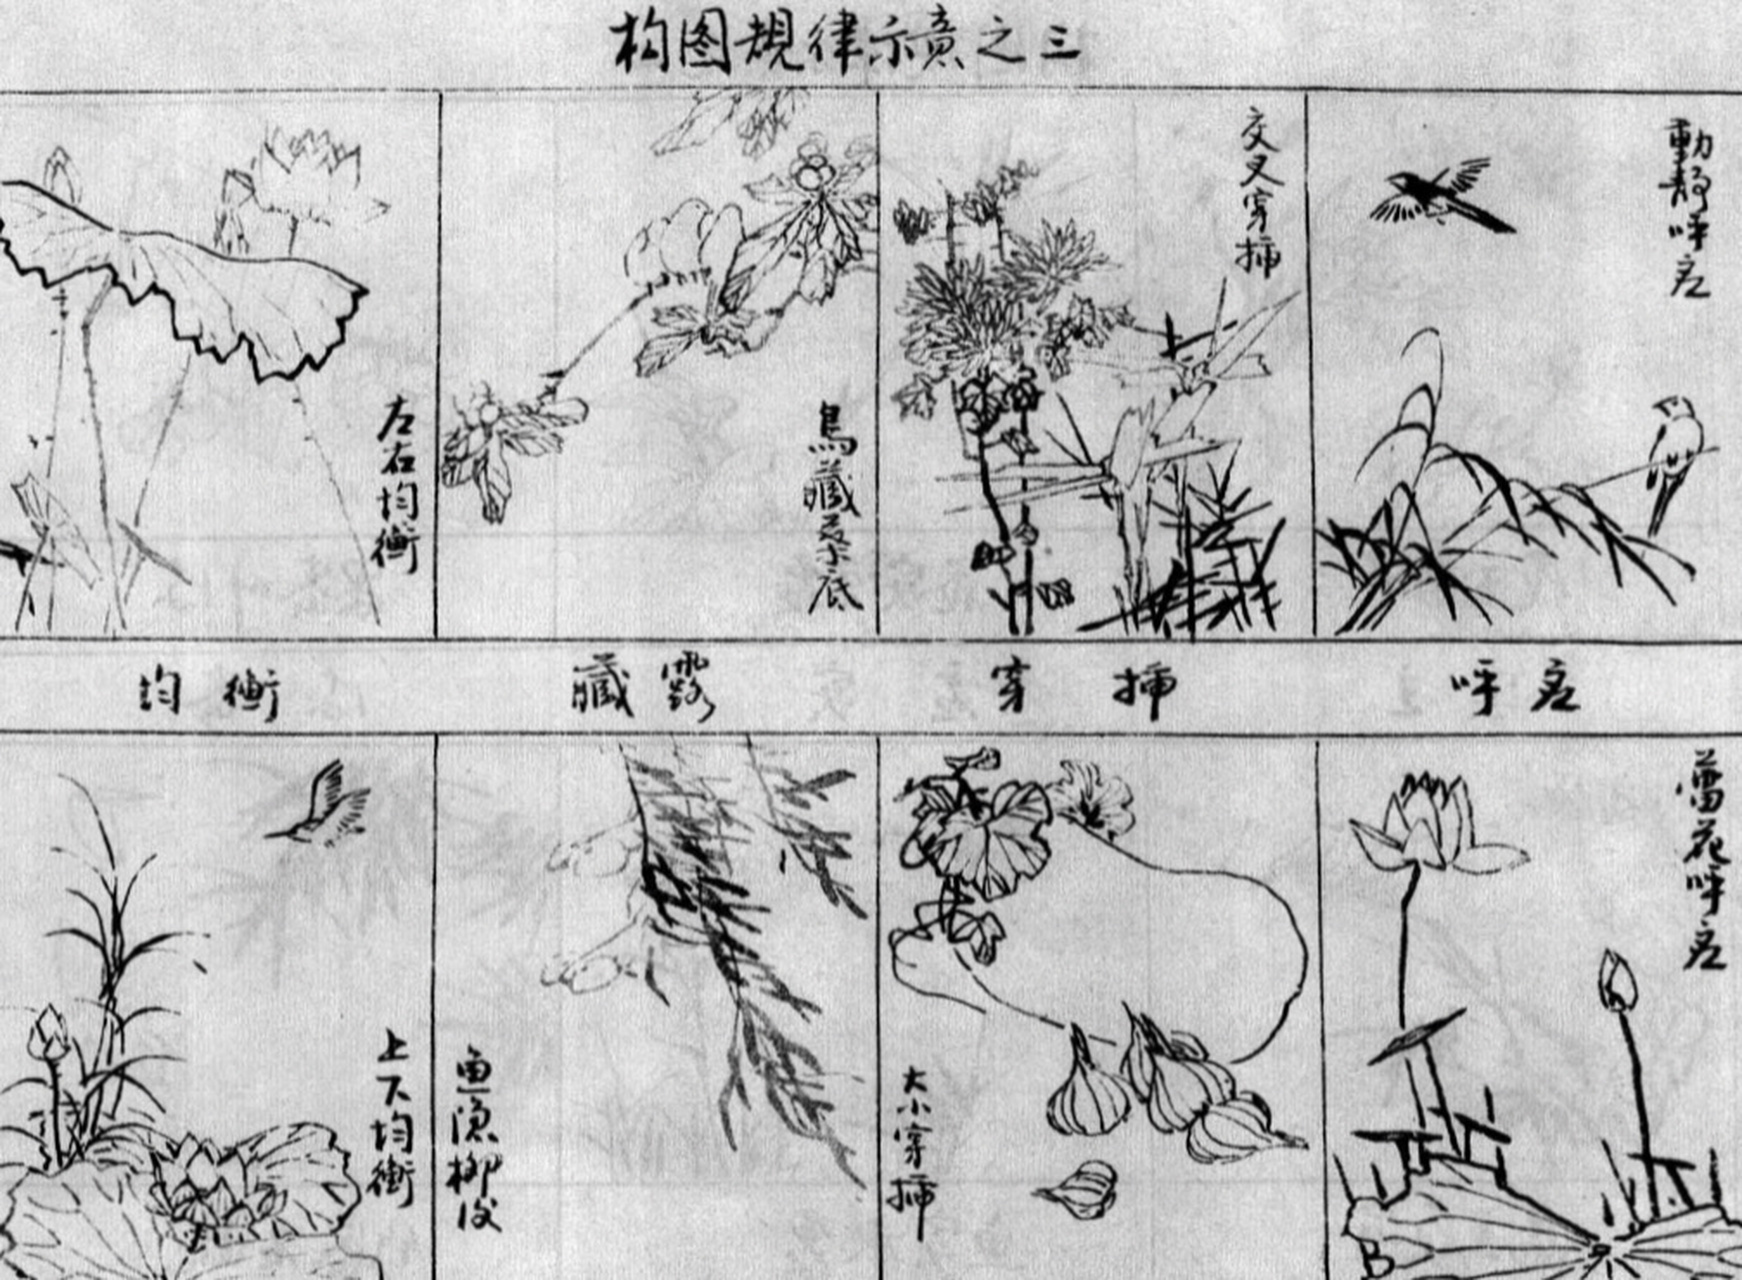 构图規律示意之三
左右均衡
鳥藏葉底
交叉穿插
動靜呼应
均衡
藏露
穿插
呼应
上下均衡
魚隐柳後
大小穿插
蕾花呼应
B